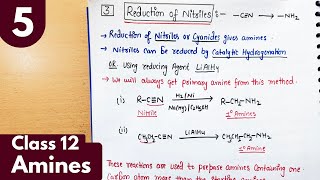 5
Class 12
Amines
3 Reduction of Nitriles :- —C≡N → —NH2
→ Reduction of Nitriles or Cyanides gives amines.
→ Nitriles can be reduced by Catalytic Hydrogenation
OR Using reducing Agent LiAlH4
→ We will always get primary amine from this method.
(i) R-C≡N H2/Ni R-CH2-NH2
Nitrile Na(Hg)/C2H5OH 1° Amine
(ii) CH3CH2-C≡N LiAlH4 CH3CH2-CH2-NH2
1° Amine
These reactions are used to prepare amines containing one
Carbon atom more than the starting amine